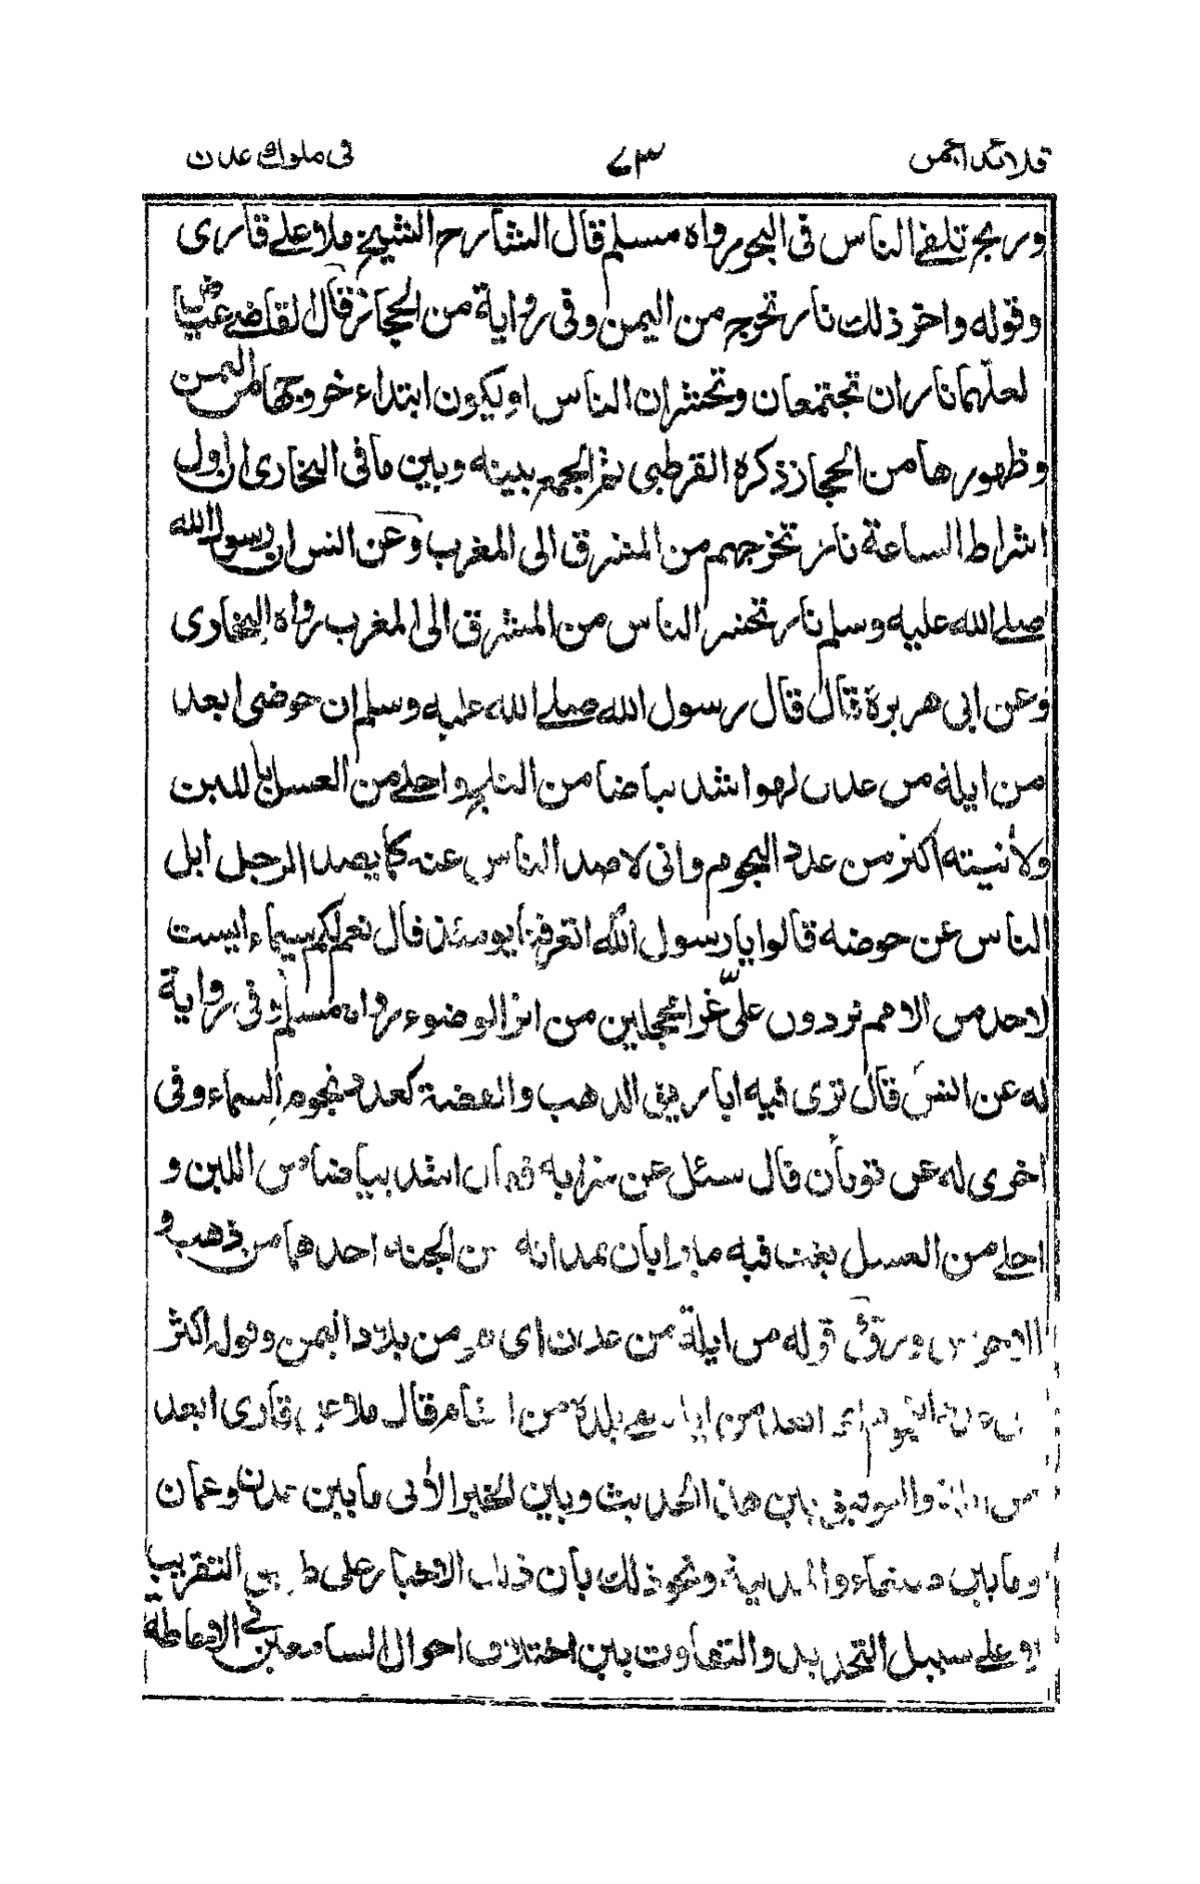 قلائد الجمن ٧٣ فى ملوك عدن
وريح تلقى الناس فى البحر رواه مسلم قال الشارح الشيخ ملا على قارى
وقوله واخر ذلك نار تخرج من اليمن وفى رواية من الحجاز قال القاضى عياض
لعلهما ناران تجتمعان وتحشران الناس او يكون ابتداء خروجها من اليمن
وظهورها من الحجاز ذكره القرطبى ثم الجمع بينه وبين ما فى البخارى ان اول
اشراط الساعة نار تخرجهم من المشرق الى المغرب وعن انس ان رسول الله
صلى الله عليه وسلم نار تحشر الناس من المشرق الى المغرب رواه البخارى
وعن ابى هريرة قال قال رسول الله صلى الله عليه وسلم ان حوضى ابعد
من ايلة من عدن لهو اشد بياضا من الثلج واحلى من العسل باللبن
ولأنيته اكثر من عدد النجوم وانى لاصد الناس عنه كما يصد الرجل ابل
الناس عن حوضه قالوا يا رسول الله اتعرفنا يومئذ قال نعم لكم سيماء ليست
لاحد من الامم تردون علىّ غرا محجلين من اثر الوضوء رواه مسلم وفى رواية
له عن انس قال ترى فيه اباريق الذهب والفضة كعدد نجوم السماء وفى
اخرى له عن ثوبان قال سئل عن شرابه فقال اشد بياضا من اللبن و
احلى من العسل يغت فيه ميزابان يمدانه من الجنة احدهما من ذهب و
الاخر من ورق قوله من ايلة من عدن اى من بلاد اليمن وقوله اكثر
من عدد النجوم ابعد من بلدة من الشام قال ملا على قارى ابعد
من والتوفيق بين هذا الحديث وبين الخبر الأتى ما بين عدن وعمان
وما بين صنعاء والمدينة ونحو ذلك بان ذلك الاخبار على طريق التقريب
لا على سبيل التحديد والتفاوت بين اختلاف احوال السامعين فى الاحاطة